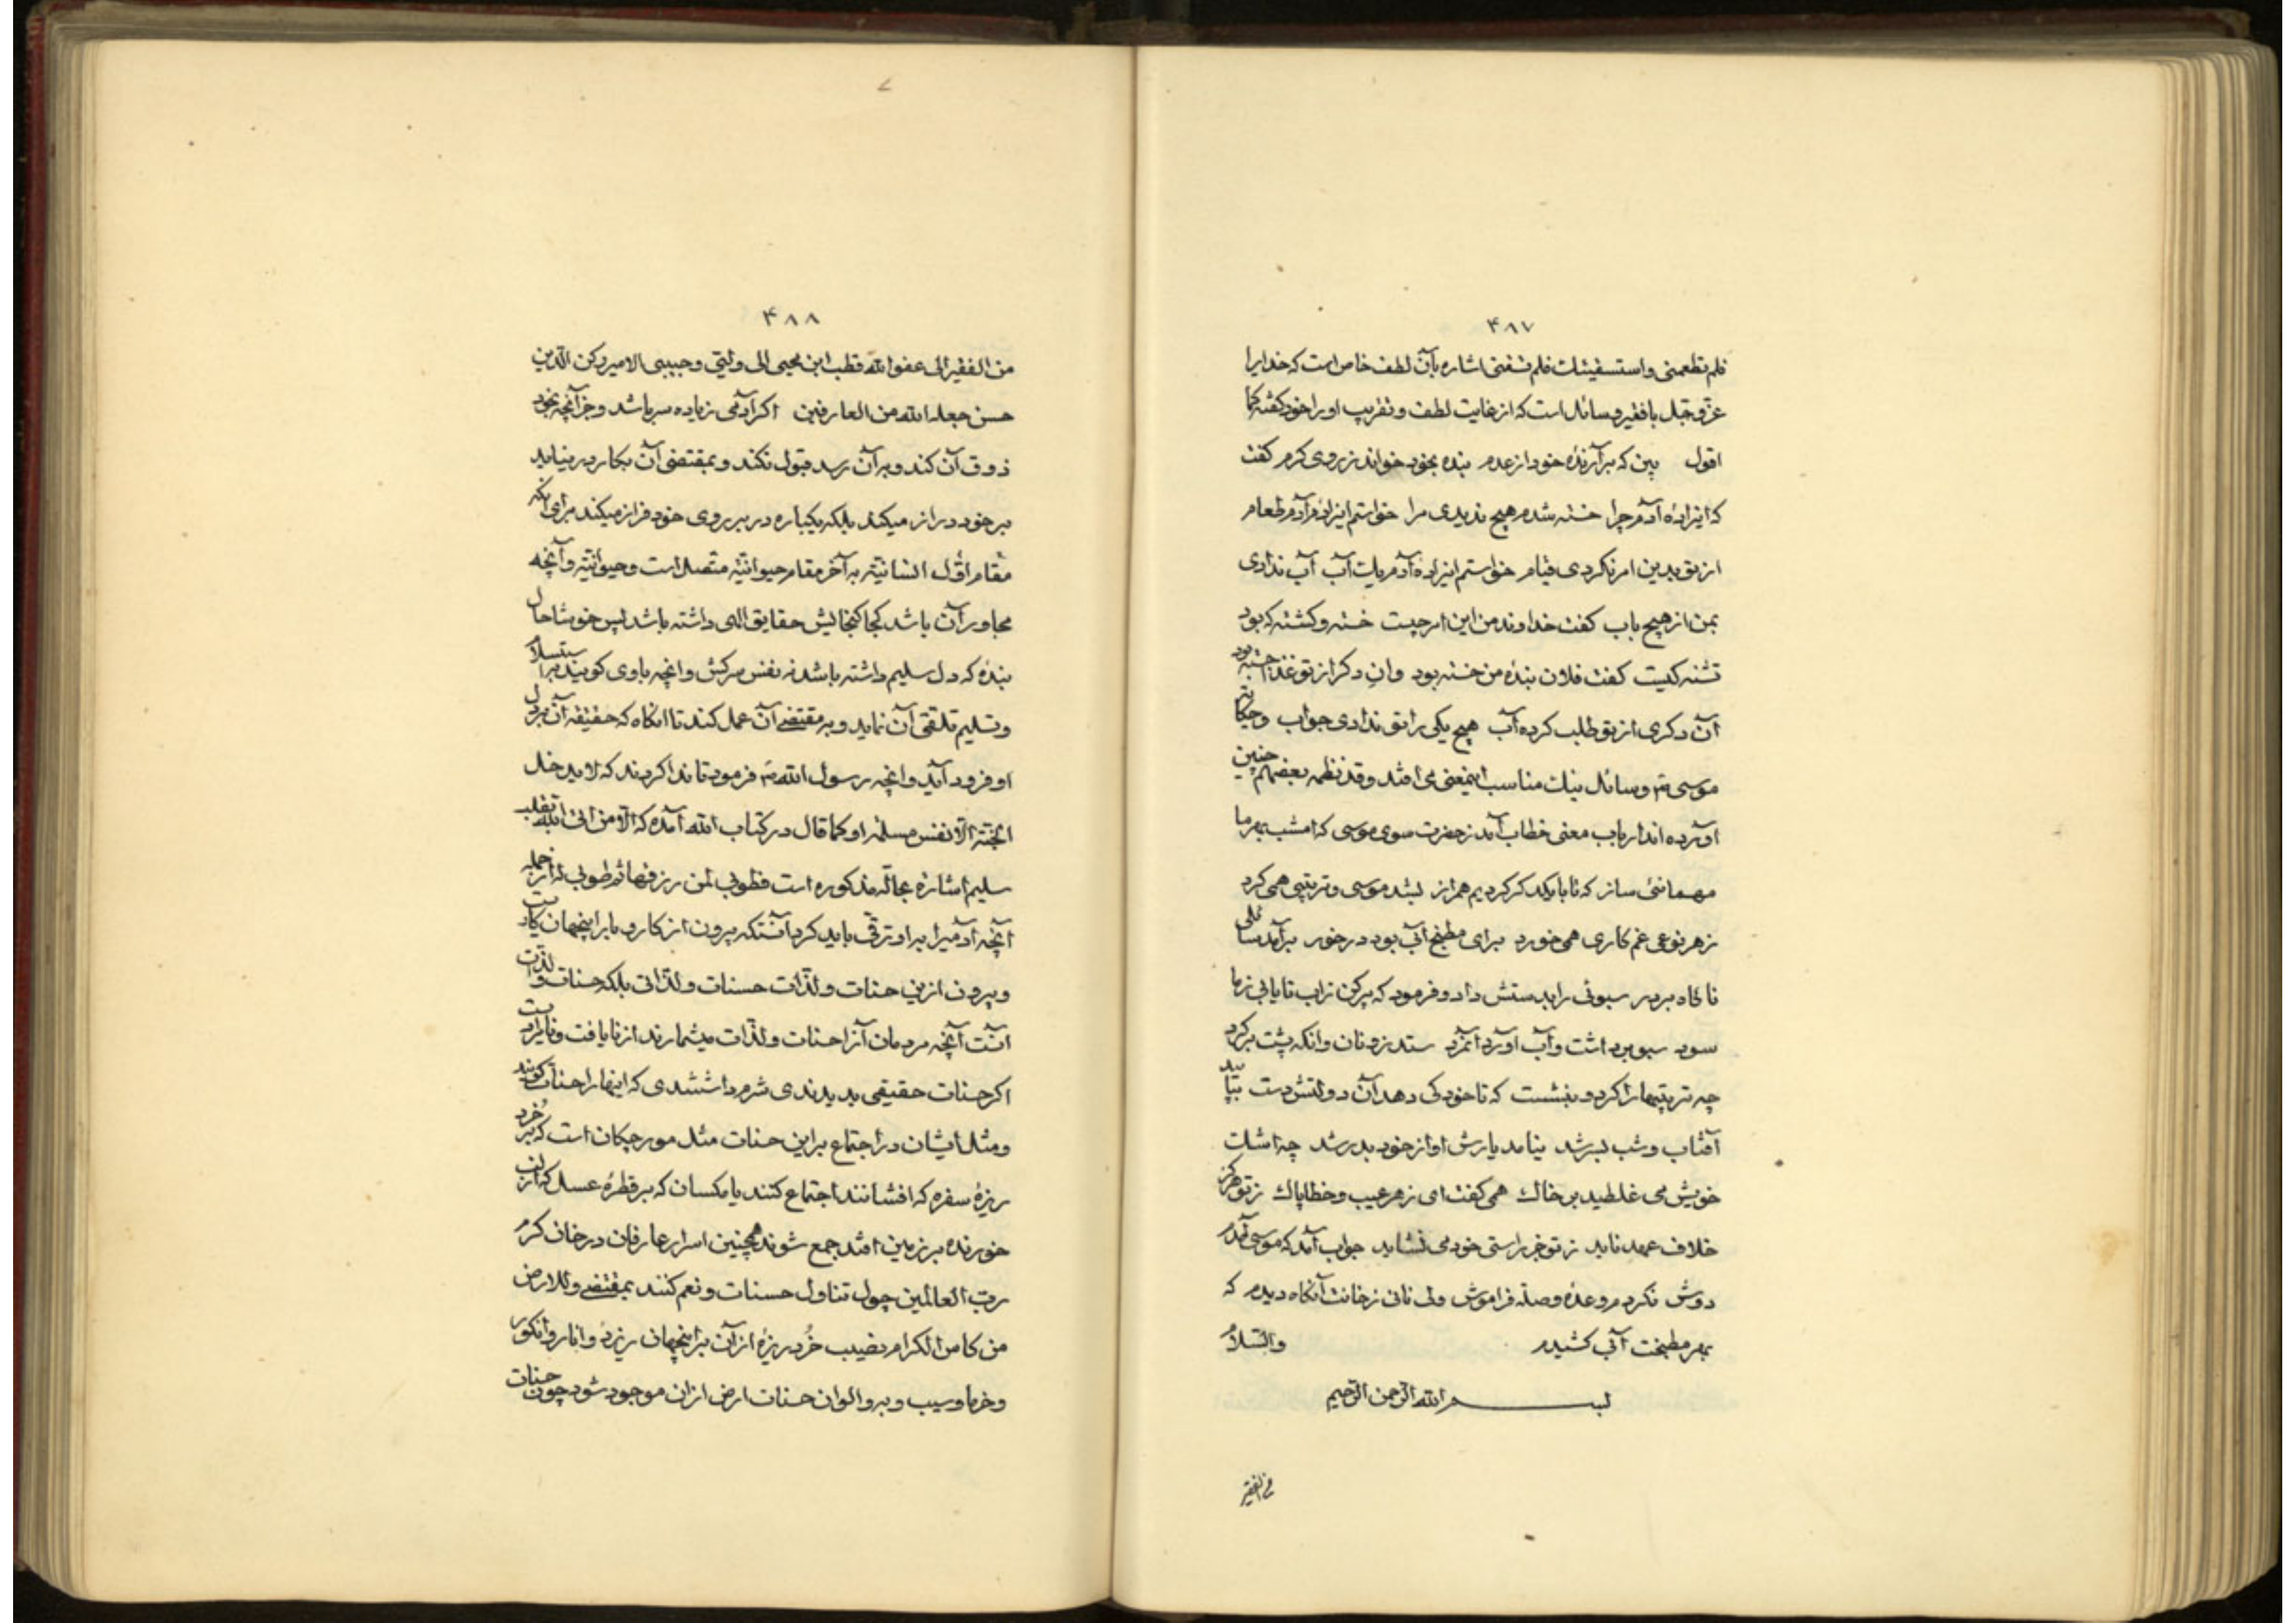 ۴۸۷
فلم تطعمنی و استسقیتک فلم تسقنی اشاره بآن لطف خاص است که خدایرا
عزّ و جلّ با فقیر و سائل است که از غایت لطف و تقریب او را خود کفته کما
اقول بین که برآرندهٔ خود از عدم بنده بخود خواند ز روی کرم کفت
که ایزادهٔ آدم چرا خسته شدم هیچ ندیدی مرا خواستم ایزادهٔ آدم طعام
از تو بدین امر نکردی قیام خواستم ایزادهٔ آدم یک آب آب ندادی
بمن از هیچ باب کفت خداوند من این امر چیست خسته و کشنه که بود
تشنه کیست کفت فلان بندهٔ من خسته بود وان دکر از تو غذا جسته بود
آن دکری از تو طلب کرده آب هیچ یکی را تو ندادی جواب و حکایت
موسی ۴ و سائل نیک مناسب اینمعنی می افتد و قد نظمه بعضهم چنین
آورده اند ارباب معنی خطاب آمد ز حضرت سوی موسی که امشب بهر ما
مهمانئی ساز که تا با یکدکر کردیم همراز بشد موسی و ترتیبی همی کرد
ز هر نوعی غم کاری همی خورد برای مطبخ آب بود در خور برآمد سائلی
ناکاه بر در سبوئی را بدستش داد و فرمود که پر کن زاب تا یابی ز ما
سود سبو برداشت و آب آورد آنمرد ستد زو نان وانکه پشت بر کرد
چه ترتیبها را کرد و بنشست که تا خود کی دهد آن دولتش دست بتابید
آفتاب و شب بسر شد نیامد یارش او از خود بدر شد چه اشک
خویش می غلطید بر خاک همی کفت ای ز هر عیب و خطا پاک ز تو هرکز
خلاف عهد ناید ز تو جز راستی خود می نشاید جواب آمد که موسی آمدم
دوش نکردم وعدهٔ وصلت فراموش ولی نانی ز خانت آنکاه دیدم که
بهر مطبخت آب کشیدم والسّلام
بسم الله الرّحمن الرّحیم
من الفقیر
۴۸۸
من الفقیر الی عفو الله قطب ابن محیی الی ولیتی و حبیبی الامیر رکن الدّین
حسن جعله الله من العارفین اکر آدمی زیاده سر باشد و جز آنچه بخود
ذوق آن کند و بر آن رسد قبول نکند و بمقتضی آن بکار در نیاید
بر خود دراز میکند بلکه یکباره در بر روی خود فراز میکند برای آنکه
مقام اوّل انسانیّة به آخر مقام حیوانیّة متصل است و حیوانیّة و آنچه
مجاور آن باشد کجا کنجایش حقایق الهی داشته باشد پس خوشا حال
بندهٔ که دل سلیم داشته باشد نه نفس سرکش و انچه باوی کویند باستسلام
و تسلیم تلقّی آن نماید و بر مقتضی آن عمل کند تا انکاه که حقیقه آن بر دل
او فرود آید و انچه رسول الله ۴ فرمود تا ندا کردند که لا یدخل
الجنّة الّا نفس مسلمة او کما قال در کتاب الله آمده که الّا من اتی الله بقلب
سلیم اشارهٔ بحالّه مذکوره است فطوبی لمن رزقها ثم طوبی له از جمله
آنچه آدمیرا بر او ترقّی باید کرد آنستکه بیرون از کار و بار اینجهان کاریست
و بیرون ازین حسنات و لذّات حسنات و لذّاتی بلکه حسنات و لذّات
آنست آنچه مردمان آنرا حسنات و لذّات میشمارند از نایافت و نامرادیست
اکر حسنات حقیقی بدیدندی شرم داشتندی که اینها را حسنات کویند
و مثل ایشان در اجتماع بر این حسنات مثل مورچکان است که بر خُرد
ریزهٔ سفره که افشانند اجتماع کنند یا مکسان که بر قطرهٔ عسل که از لب
خورنده بر زمین افتد جمع شوند همچنین اسرار عارفان در خان کرم
ربّ العالمین چول تناول حسنات و نعم کنند بمقتضی و للارض
من کاس الکرام نصیب خُرد ریزهٔ از آن بر اینجهان ریزد و انار و انکور
و خرما و سیب و به و الوان حسنات ارض ازان موجود شود چون حسنات